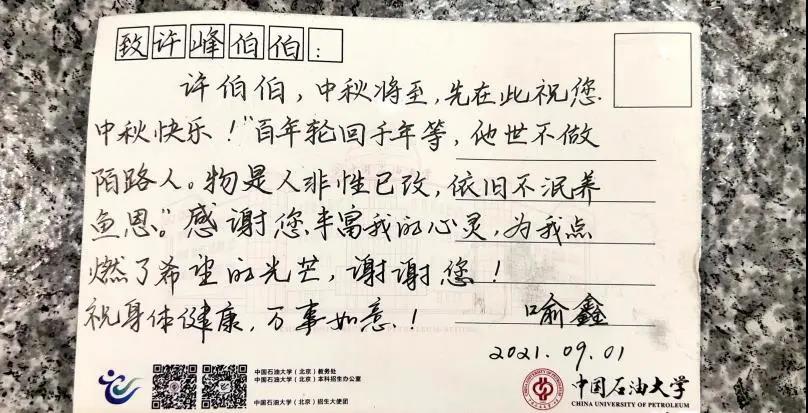 致许峰伯伯:
许伯伯,中秋将至,先在此祝您
中秋快乐!"百年轮回千年等,他世不做
陌路人。物是人非性已改,依旧不泯养
鱼恩。"感谢您丰富我的心灵,为我点
燃了希望的光芒,谢谢您!
祝身体健康,万事如意!
喻鑫
2021.09.01
中国石油大学(北京)教务处
中国石油大学(北京)本科招生办公室
中国石油大学(北京)招生大使团
中国石油大学
CHINA UNIVERSITY OF PETROLEUM